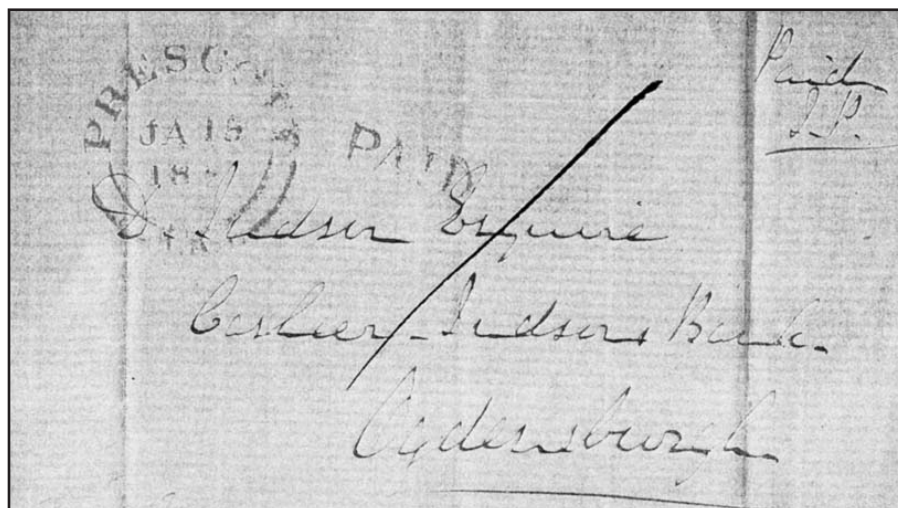 PRESCOTT
JA 15
18
PAID
Paid
D. Judson Esquire
Cashier Judsons Bank.
Ogdensburgh